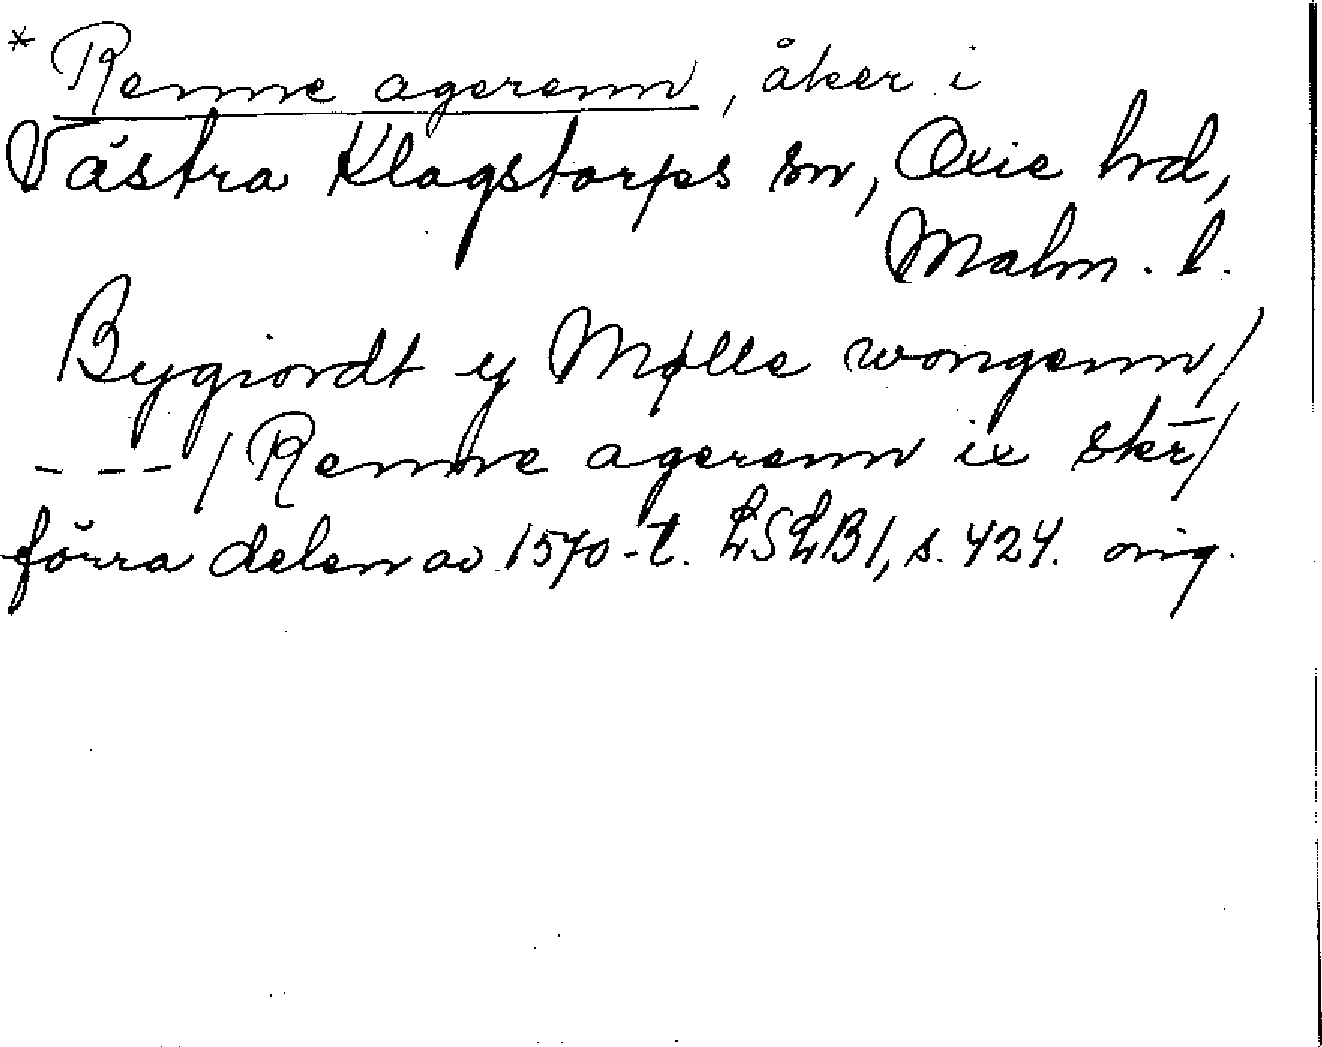 * Renne agerenn, åker i
Västra Klagstorps sn, Oxie hd,
Malm. l.
Bygiordt y Mølle wongenn/
---/Renne agerenn ix skr̄/
förra delen av 1570-t. LSLB1, s. 424. orig.